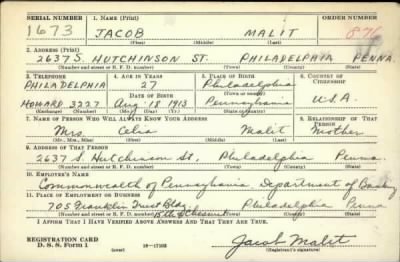 SERIAL NUMBER 1. NAME (Print) ORDER NUMBER
1673 JACOB MALIT 876
(First) (Middle) (Last)
2. ADDRESS (Print)
2637 S. HUTCHINSON ST. PHILADELPHIA PENNA.
(Number and street or R. F. D. number) (Town) (County) (State)
3. TELEPHONE 4. AGE IN YEARS 5. PLACE OF BIRTH 6. COUNTRY OF CITIZENSHIP
PHILADELPHIA 27 Philadelphia
DATE OF BIRTH (Town or county)
HOWARD 3227 Aug. 18 1913 Pennsylvania U.S.A.
(Exchange) (Number) (Mo.) (Day) (Yr.) (State or country)
7. NAME OF PERSON WHO WILL ALWAYS KNOW YOUR ADDRESS 8. RELATIONSHIP OF THAT PERSON
Mrs. Celia Malit Mother
(Mr., Mrs., Miss) (First) (Middle) (Last)
9. ADDRESS OF THAT PERSON
2637 S. Hutchinson St., Philadelphia Penna.
(Number and street or R. F. D. number) (Town) (County) (State)
10. EMPLOYER'S NAME
Commonwealth of Pennsylvania, Department of Banking
11. PLACE OF EMPLOYMENT OR BUSINESS
705 Franklin Trust Bldg. Philadelphia Penna
15th & Chestnut
(Number and street or R. F. D. number) (Town) (County) (State)
I AFFIRM THAT I HAVE VERIFIED ABOVE ANSWERS AND THAT THEY ARE TRUE.
REGISTRATION CARD
D. S. S. Form 1 (over) 16-17105 Jacob Malit
(Registrant's signature)